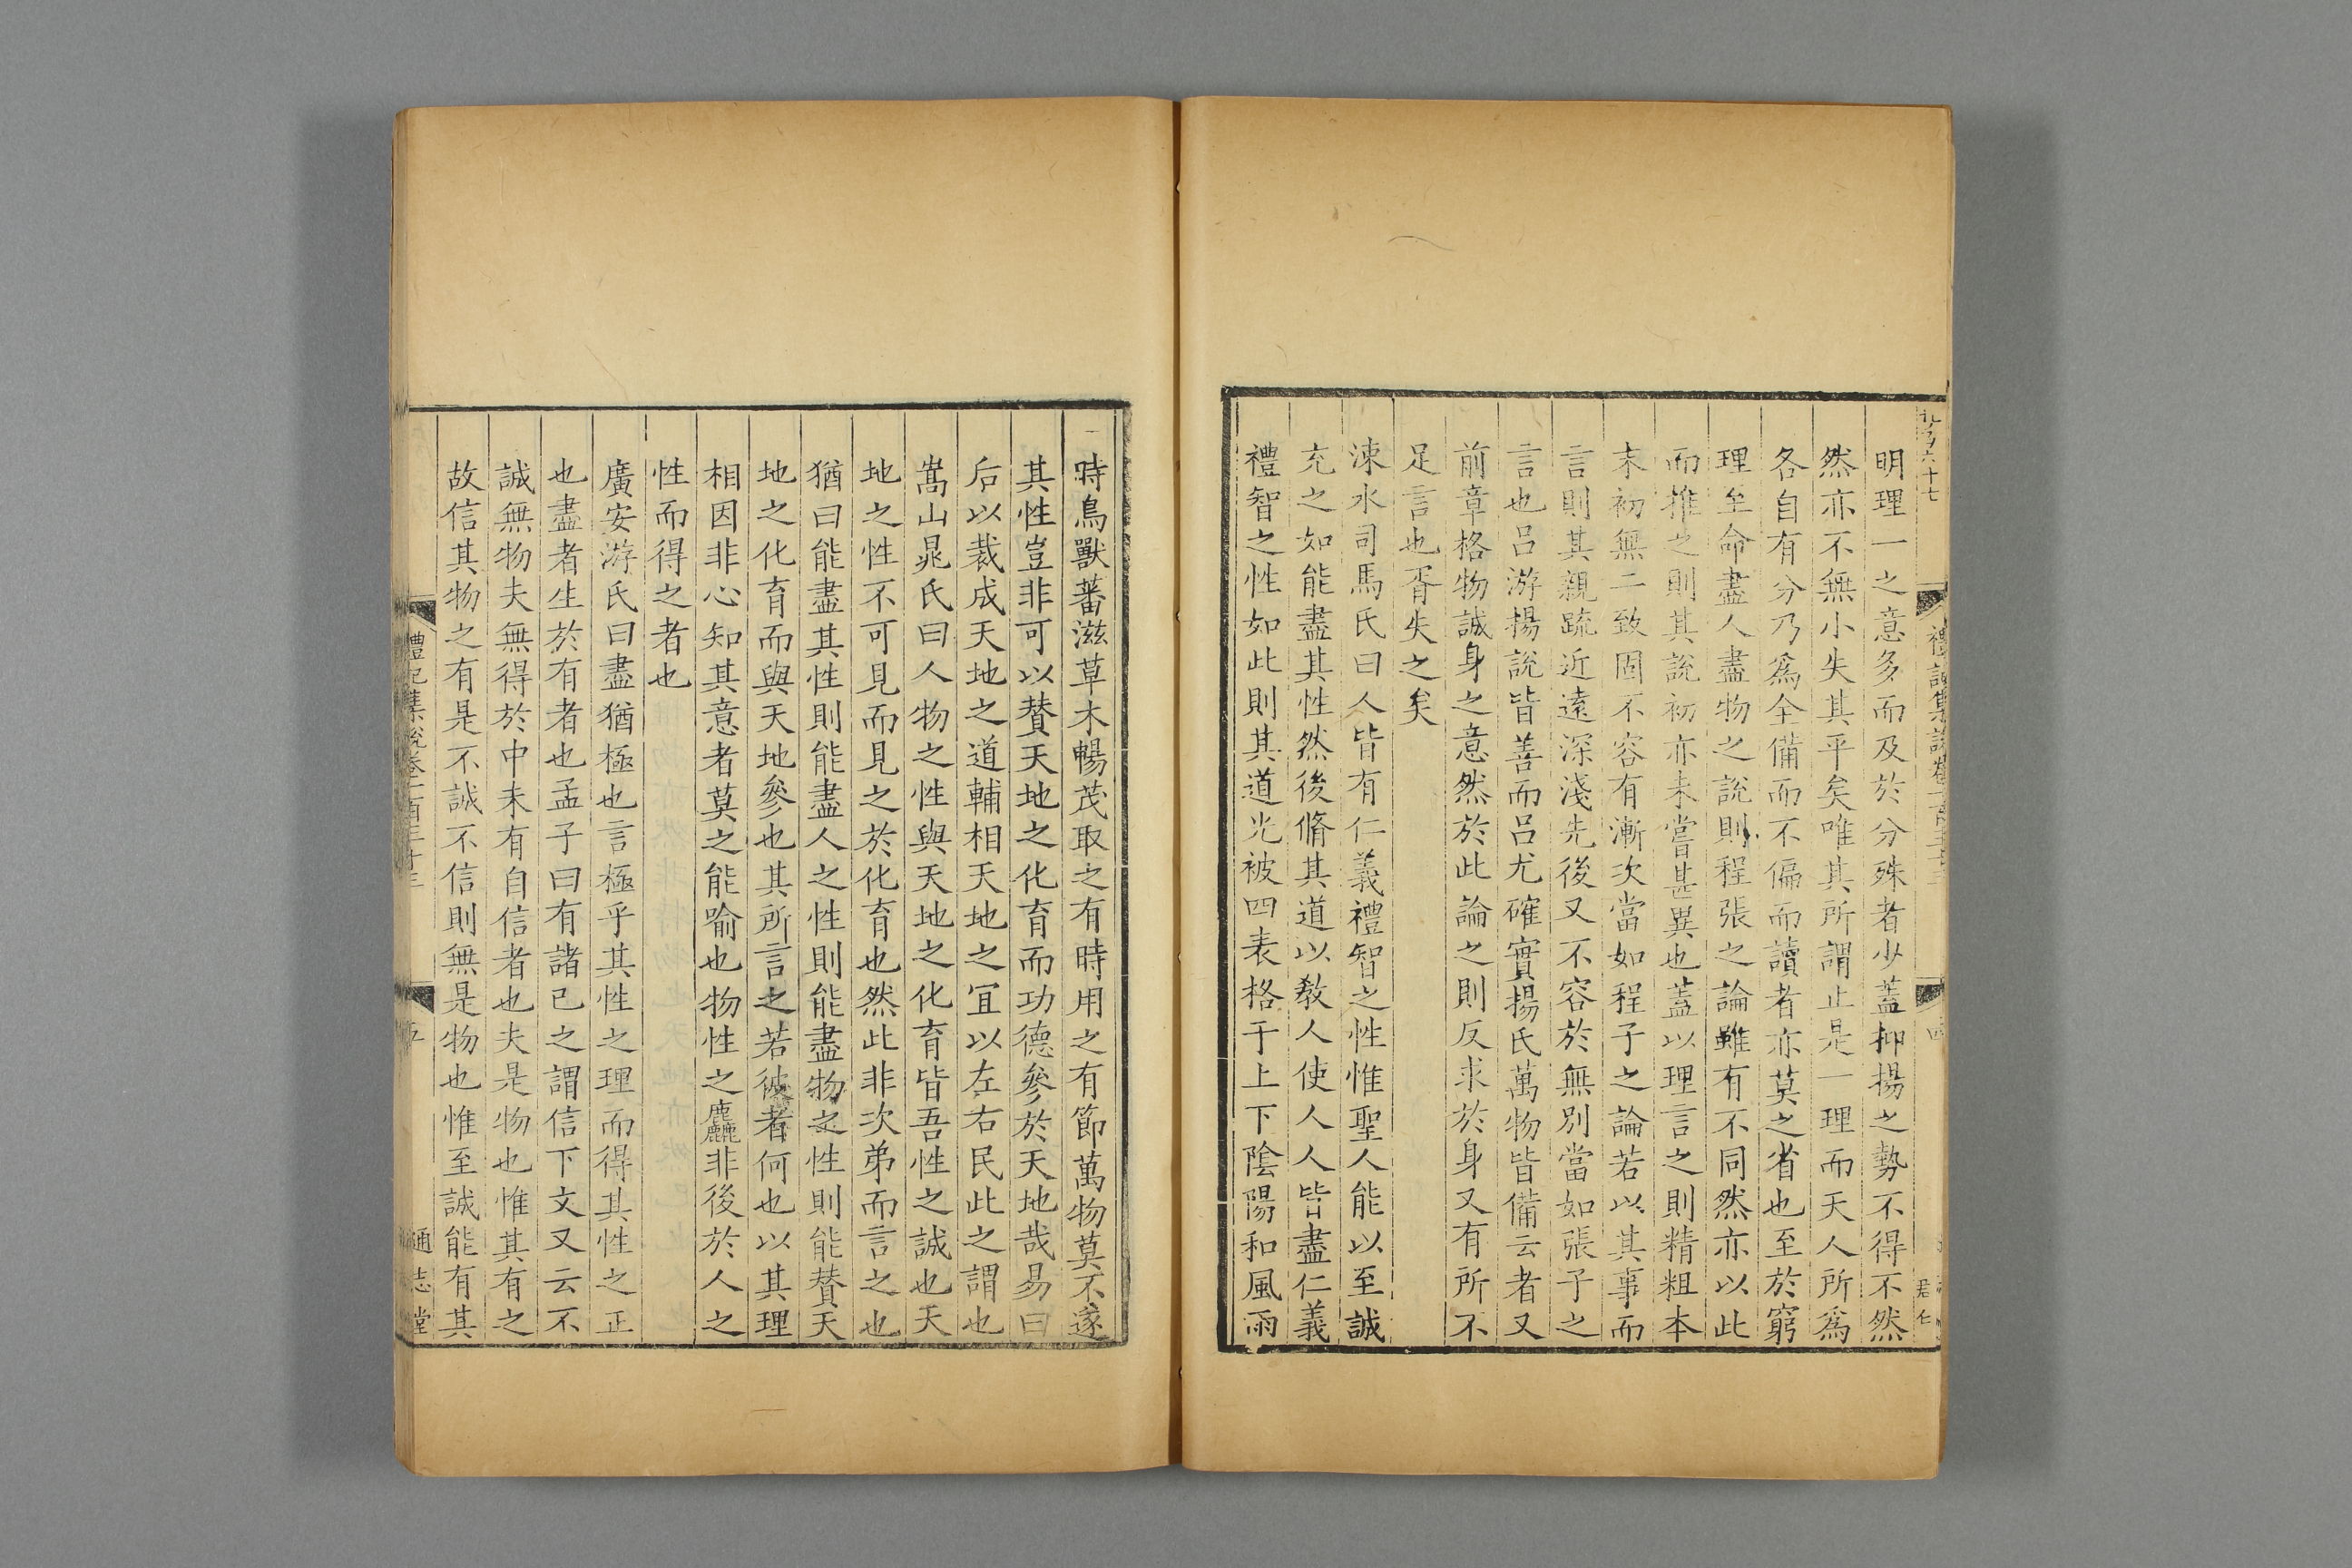 明理一之意多而及於分殊者少蓋抑揚之勢不得不然
然亦不無小失其平矣唯其所謂止是一理而天人所爲
各自有分乃爲全備而不偏而讀者亦莫之省也至於窮
理至命盡人盡物之說則程張之論雖有不同然亦以此
而推之則其說初亦未嘗甚異也蓋以理言之則精粗本
末初無二致固不容有漸次當如程子之論若以其事而
言則其親疏近遠深淺先後又不容於無別當如張子之
言也呂游揚說皆善而呂尤確實揚氏萬物皆備云者又
前章格物誠身之意然於此論之則反求於身又有所不
足言也胥失之矣
涑水司馬氏曰人皆有仁義禮智之性惟聖人能以至誠
充之如能盡其性然後脩其道以敎人使人人皆盡仁義
禮智之性如此則其道光被四表格于上下陰陽和風雨
時鳥獸蕃滋草木暢茂取之有時用之有節萬物莫不遂
其性豈非可以賛天地之化育而功德參於天地哉易曰
后以裁成天地之道輔相天地之宜以左右民此之謂也
嵩山晁氏曰人物之性與天地之化育皆吾性之誠也天
地之性不可見而見之於化育也然此非次弟而言之也
猶曰能盡其性則能盡人之性則能盡物之性則能賛天
地之化育而與天地參也其所言之若彼者何也以其理
相因非心知其意者莫之能喻也物性之麤非後於人之
性而得之者也
廣安游氏曰盡猶極也言極乎其性之理而得其性之正
也盡者生於有者也孟子曰有諸已之謂信下文又云不
誠無物夫無得於中未有自信者也夫是物也惟其有之
故信其物之有是不誠不信則無是物也惟至誠能有其
禮記集說卷一百三十三
五
通志堂